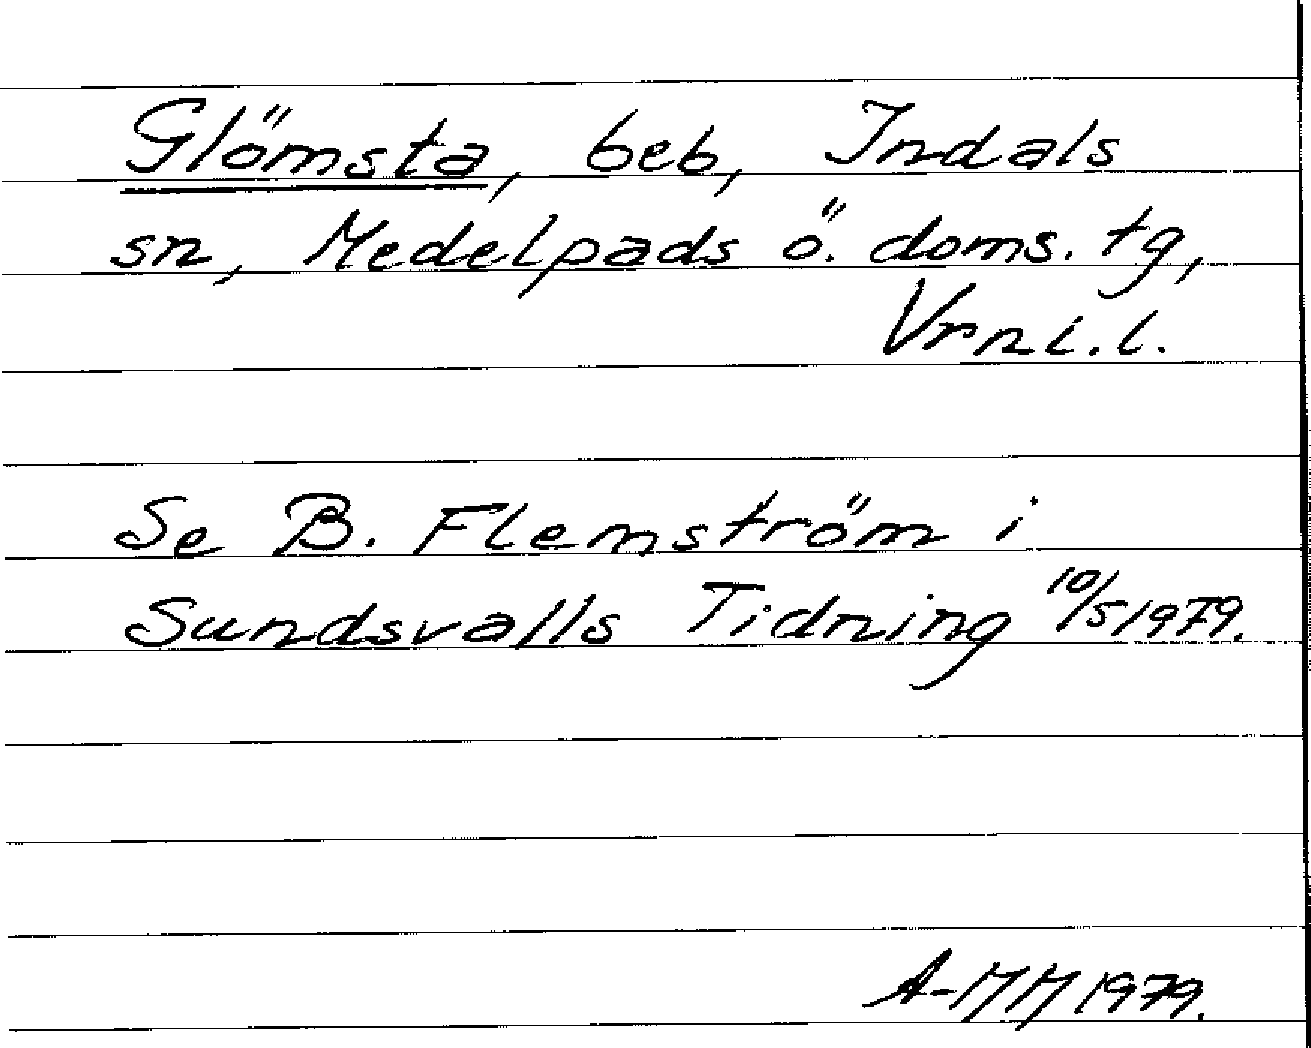 Glömsta, beb, Indals
sn, Medelpads ö. doms. tg,
Vrnl.l.
Se B. Flemström i
Sundsvalls Tidning 10/5 1979.
A-MM 1979.